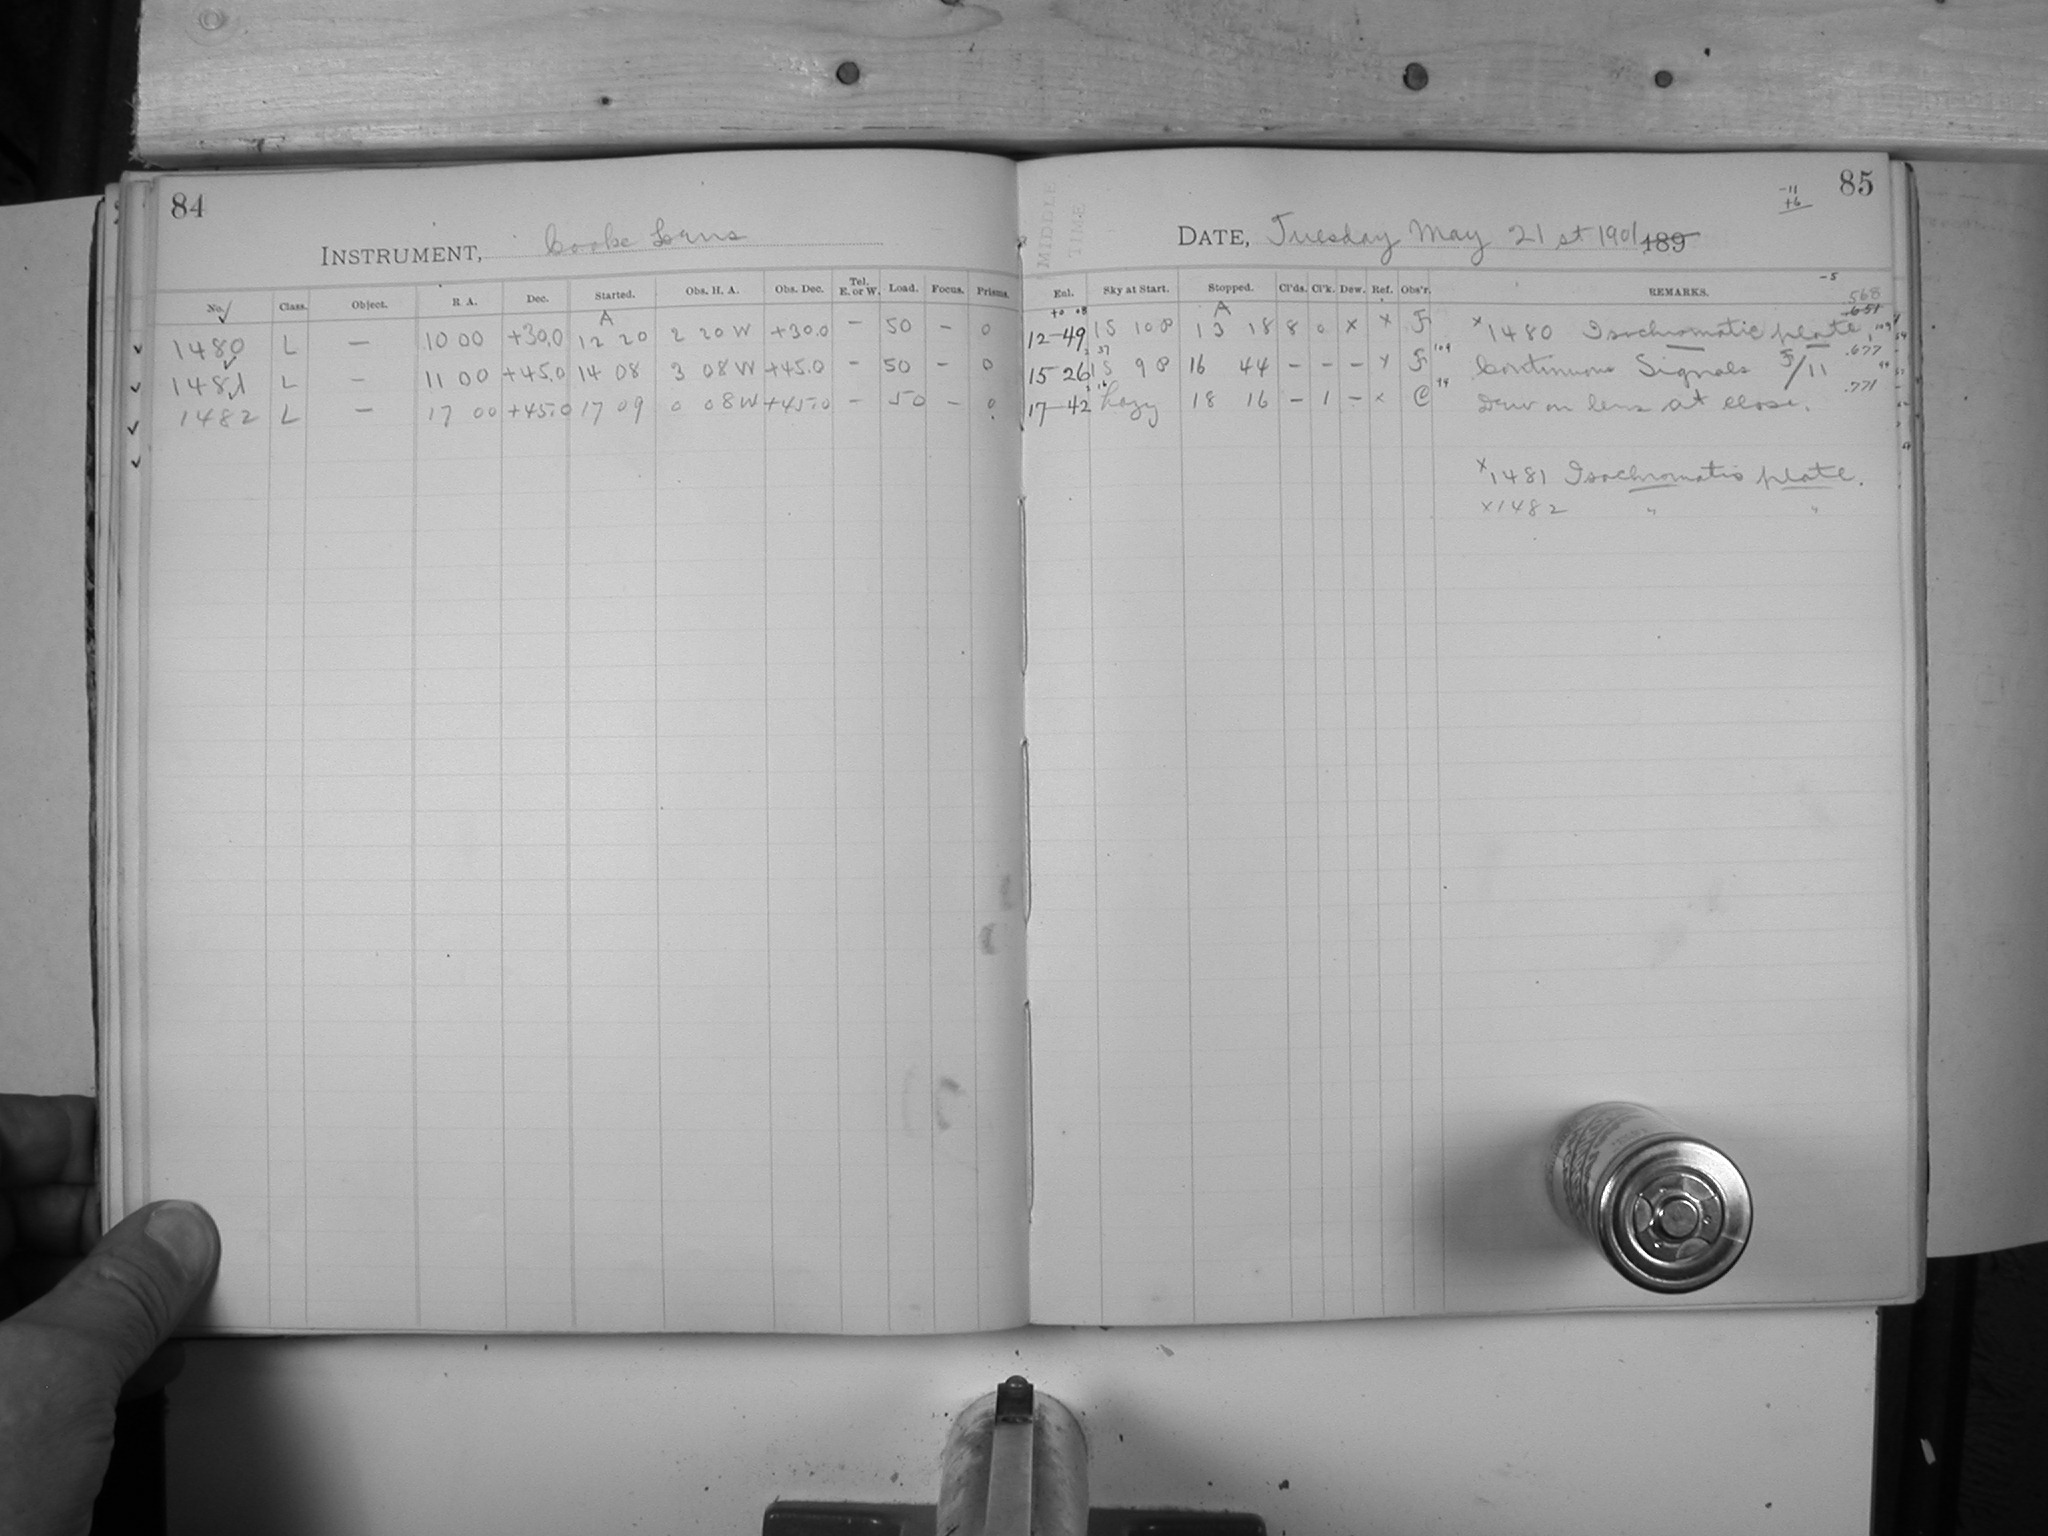 84
INSTRUMENT, Cooke Lens
No. Class. Object. R A. Dec. Started. Obs. H. A. Obs. Dec. Tel. E. or W. Load. Focus. Prisms.
A
1480 L — 10 00 +30.0 12 20 2 20 W +30.0 – 50 – 0
1481 L – 11 00 +45.0 14 08 3 08 W +45.0 – 50 – 0
1482 L — 17 00 +45.0 17 09 0 08 W +45.0 – 50 – 0
85
-11
+6
MIDDLE TIME
DATE, Tuesday May 21st 1901 189
-5
Enl. Sky at Start. Stopped. Cl'ds. Cl'k. Dew. Ref. Obs'r. REMARKS.
A
.568
.651
12–49 15 10 8 13 18 8 0 x x Fr x1480 Isochromatic plate,
15 26 15 9 8 16 44 – – – x Fr 104 Continuous Signals F/11 .677
17–42 hazy 18 16 – 1 – x C 94 Dew on lens at close. .771
x1481 Isochromatic plate.
x1482 " "